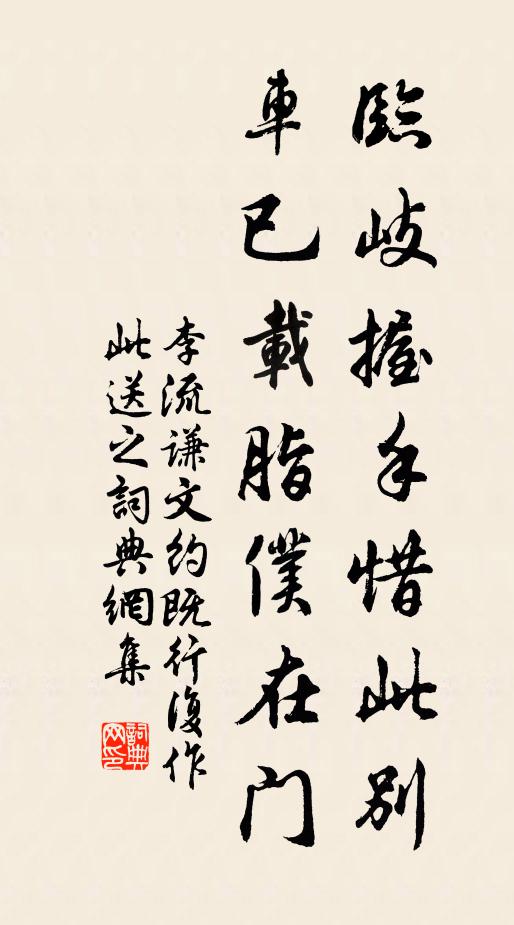 臨岐握手惜此別
車已載脂僕在門
李流謙文約既行復作
此送之詞典網集
詞典
网印